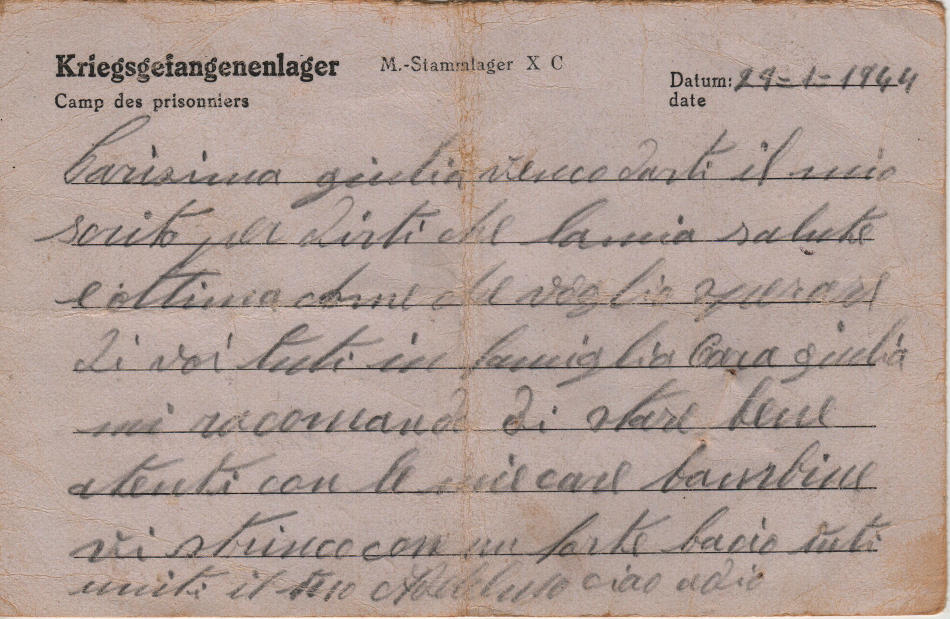 Kriegsgefangenenlager M.-Stammlager X C
Camp des prisonniers
Datum: 29-1-1944
date
Carisima giulia venco darti il mio
scrito per dirti che la mia salute
e ottima chome che voglio sperare
di voi tuti in famiglia Cara giulia
mi racomando di stare bene
atenti con le mie care bambine
vi strinco con un forte bacio tuti
uniti il tuo ciao adio